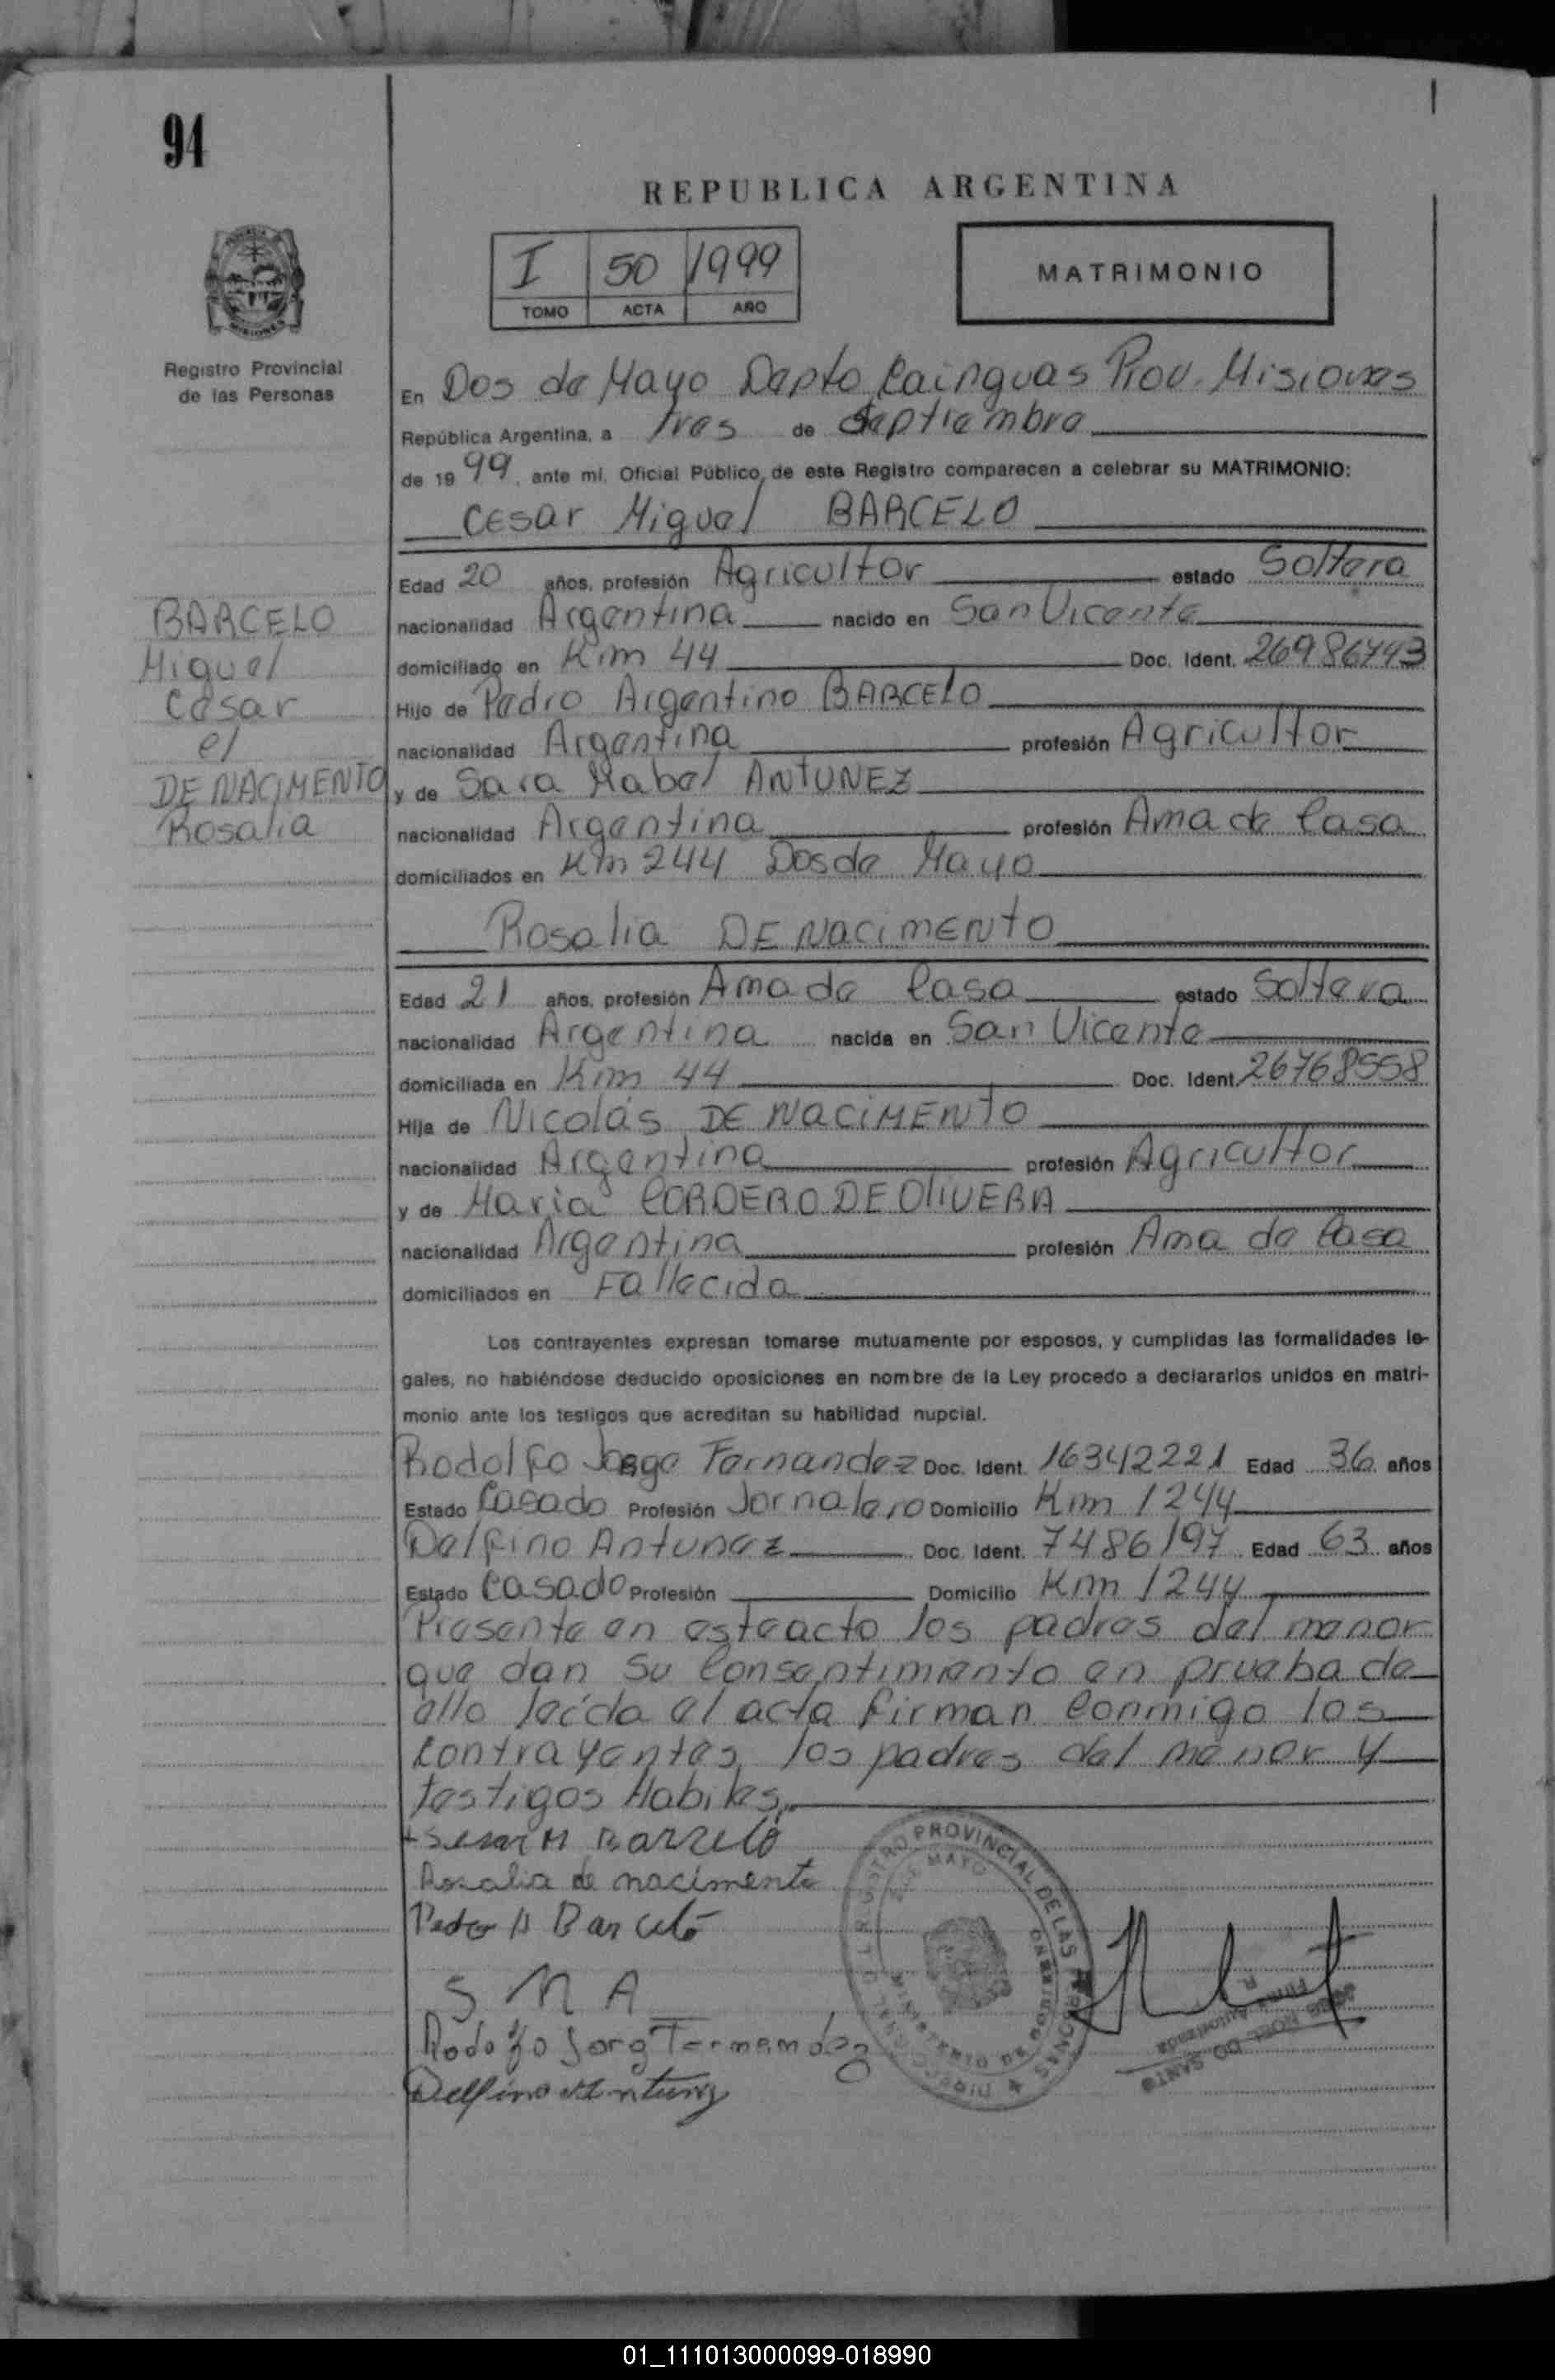 94
REPUBLICA ARGENTINA
I 50 1999
TOMO ACTA AÑO
MATRIMONIO
Registro Provincial
de las Personas
En Dos de Mayo Depto Cainguas Prov. Misiones
República Argentina, a Tres de Septiembre
de 1999, ante mí, Oficial Público, de este Registro comparecen a celebrar su MATRIMONIO:
Cesar Miguel BARCELO
Edad 20 años, profesión Agricultor estado Soltera
nacionalidad Argentina nacido en San Vicente
domiciliado en Km 44 Doc. Ident. 26986443
Hijo de Pedro Argentino BARCELO
nacionalidad Argentina profesión Agricultor
y de Sara Mabel ANTUNEZ
nacionalidad Argentina profesión Ama de Casa
domiciliados en Km 244 Dos de Mayo
BARCELO
Miguel
Cesar
el
DE NACIMENTO
Rosalia
Rosalia DE NACIMENTO
Edad 21 años, profesión Ama de Casa estado Soltera
nacionalidad Argentina nacida en San Vicente
domiciliada en Km 44 Doc. Ident. 26768558
Hija de Nicolás DE NACIMENTO
nacionalidad Argentina profesión Agricultor
y de Maria CORDERO DE OLIVERA
nacionalidad Argentina profesión Ama de Casa
domiciliados en Fallecida
Los contrayentes expresan tomarse mutuamente por esposos, y cumplidas las formalidades le-
gales, no habiéndose deducido oposiciones en nombre de la Ley procedo a declararlos unidos en matri-
monio ante los testigos que acreditan su habilidad nupcial.
Rodolfo Jorge Fernandez Doc. Ident. 16342221 Edad 36 años
Estado Casado Profesión Jornalero Domicilio Km 1244
Delfino Antunez Doc. Ident. 7486197 Edad 63 años
Estado Casado Profesión Domicilio Km 1244
Presente en este acto los padres del menor
que dan su Consentimiento en prueba de
ello leída el acta firman Conmigo los
Contrayentes, los padres del menor y
testigos Habiles,
Sesar M Barzelo
Rosalia de nacimento
Pedro A Barceló
S M A
Rodolfo Jorg Fernandez
Delfino Antunez
REGISTRO PROVINCIAL DE LAS PERSONAS
DOS DE MAYO
MINISTERIO DE GOBIERNO
JOSE NOEL DO SANTO
Firma Autorizada
01_111013000099-018990